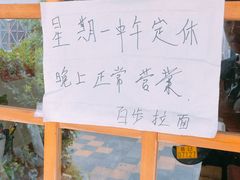 星期一中午定休
晚上正常营業.
百步拉面